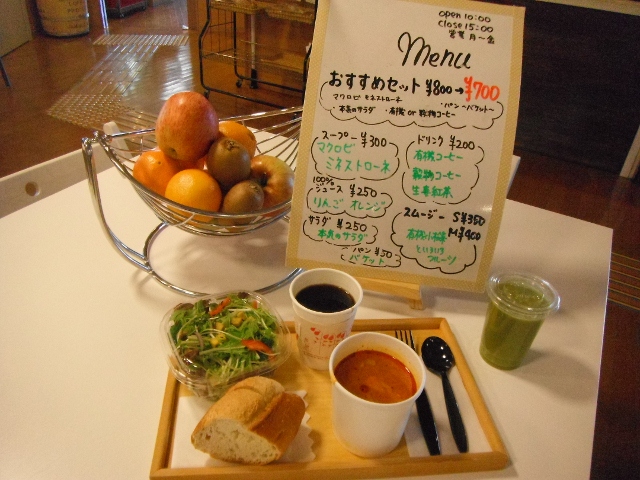 open 10:00
close 15:00
営業 月～金
Menu
おすすめセット ¥800→¥700
マクロビ ミネストローネ ・パン～バケット～
本気のサラダ ・有機 or 穀物コーヒー
スープー ¥300
マクロビ
ミネストローネ
100%
ジュース ¥250
りんご オレンジ
サラダ ¥250
本気のサラダ
パン ¥50
バケット
ドリンク ¥200
有機コーヒー
穀物コーヒー
生姜紅茶
スムージー S¥350
M¥400
有機小松菜
フルーツ